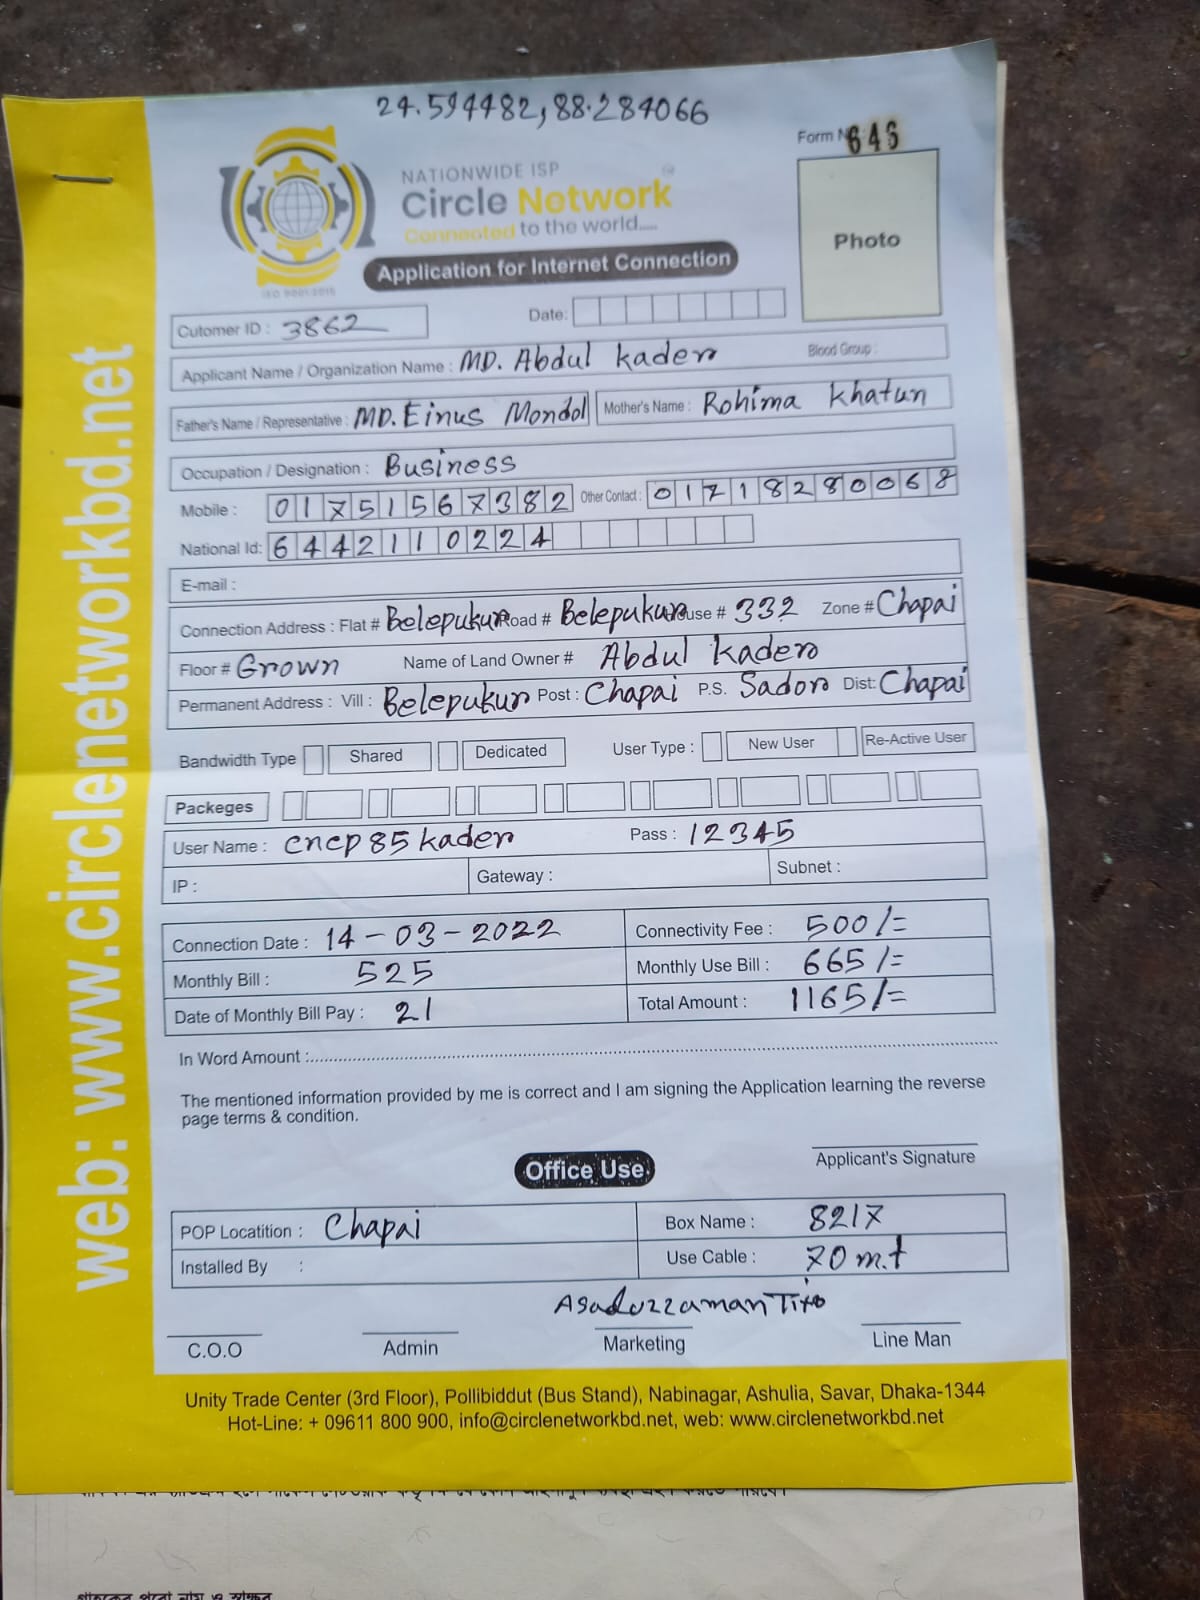 24.594482,88.284066
Form N 646
NATIONWIDE ISP
Circle Network
Connected to the world.....
Photo
Application for Internet Connection
ISO 9001:2015
Cutomer ID : 3862
Date:
Applicant Name / Organization Name : MD. Abdul Kader
Blood Group :
Father's Name / Representative : MD. Einus Mondol
Mother's Name : Rohima Khatun
Occupation / Designation : Business
Mobile : 01751567382
Other Contact : 01718280068
National Id: 6442110224
E-mail :
Connection Address : Flat # Belepukur Road # Belepukur House # 332 Zone # Chapai
Floor # Grown Name of Land Owner # Abdul Kader
Permanent Address : Vill : Belepukur Post : Chapai P.S. Sador Dist: Chapai
Bandwidth Type Shared Dedicated User Type : New User Re-Active User
Packeges
User Name : cncp85kader Pass : 12345
IP : Gateway : Subnet :
Connection Date : 14-03-2022 Connectivity Fee : 500/=
Monthly Bill : 525 Monthly Use Bill : 665/=
Date of Monthly Bill Pay : 21 Total Amount : 1165/=
In Word Amount :
The mentioned information provided by me is correct and I am signing the Application learning the reverse
page terms & condition.
Applicant's Signature
Office Use
POP Locatition : Chapai Box Name : 8217
Installed By : Use Cable : 70 m.t
Asaduzzaman Tito
C.O.O Admin Marketing Line Man
Unity Trade Center (3rd Floor), Pollibiddut (Bus Stand), Nabinagar, Ashulia, Savar, Dhaka-1344
Hot-Line: + 09611 800 900, info@circlenetworkbd.net, web: www.circlenetworkbd.net
web: www.circlenetworkbd.net